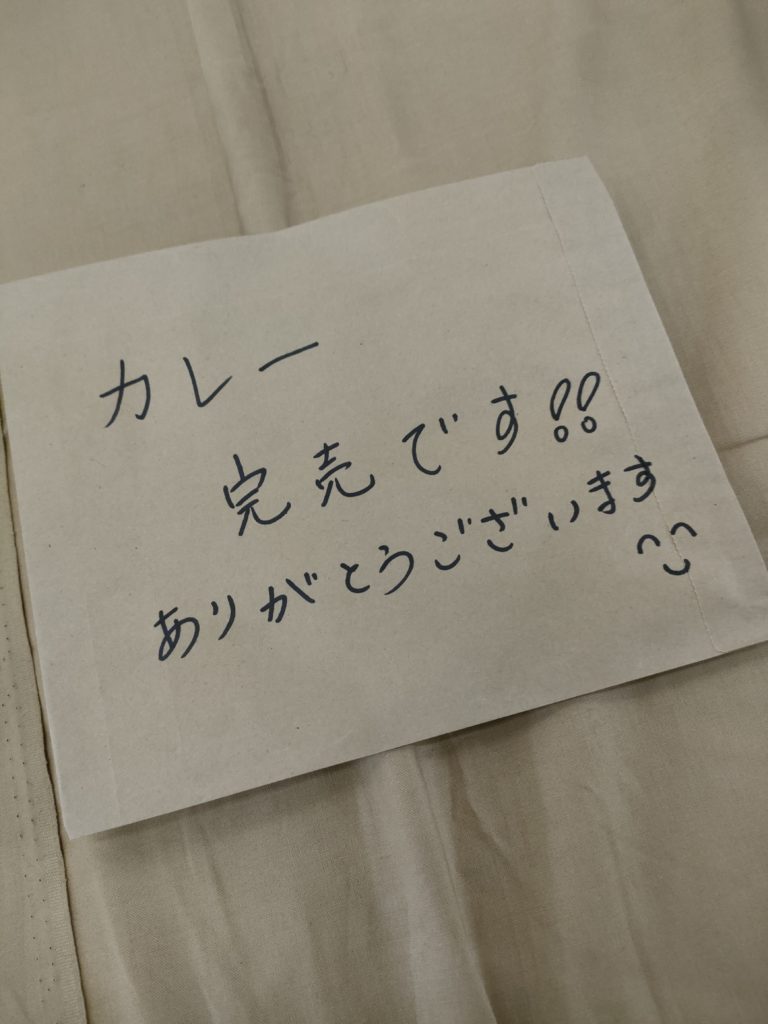 カレー
完売です!!
ありがとうございます